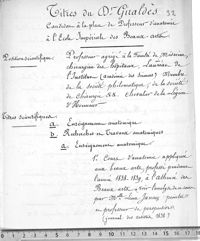 Titres du Dr Giraldès
Candidat à la place de Professeur d'anatomie
à l'École Impériale des Beaux-arts
Position scientifique : Professeur agrégé à la Faculté de Médecine,
chirurgien des hôpitaux, Lauréat de
l'Institut (académie des sciences) Membre
de la société philomatique, de la société
de chirurgie &&. chevalier de la légion
d'Honneur
Titres scientifiques
a - Enseignement anatomique
b Recherches ou Travaux anatomiques
a Enseignement anatomique
1. Cours d'anatomie appliquée
aux beaux arts, professé pendant
l'année 1838-1839, à l'athénée des
Beaux arts
peintre
professeur de perspective